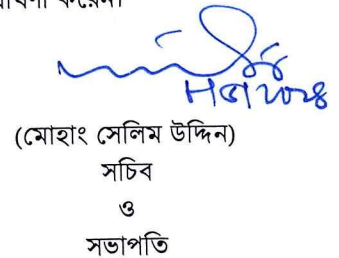 করেন।
(মোহাং সেলিম উদ্দিন)
সচিব
ও
সভাপতি